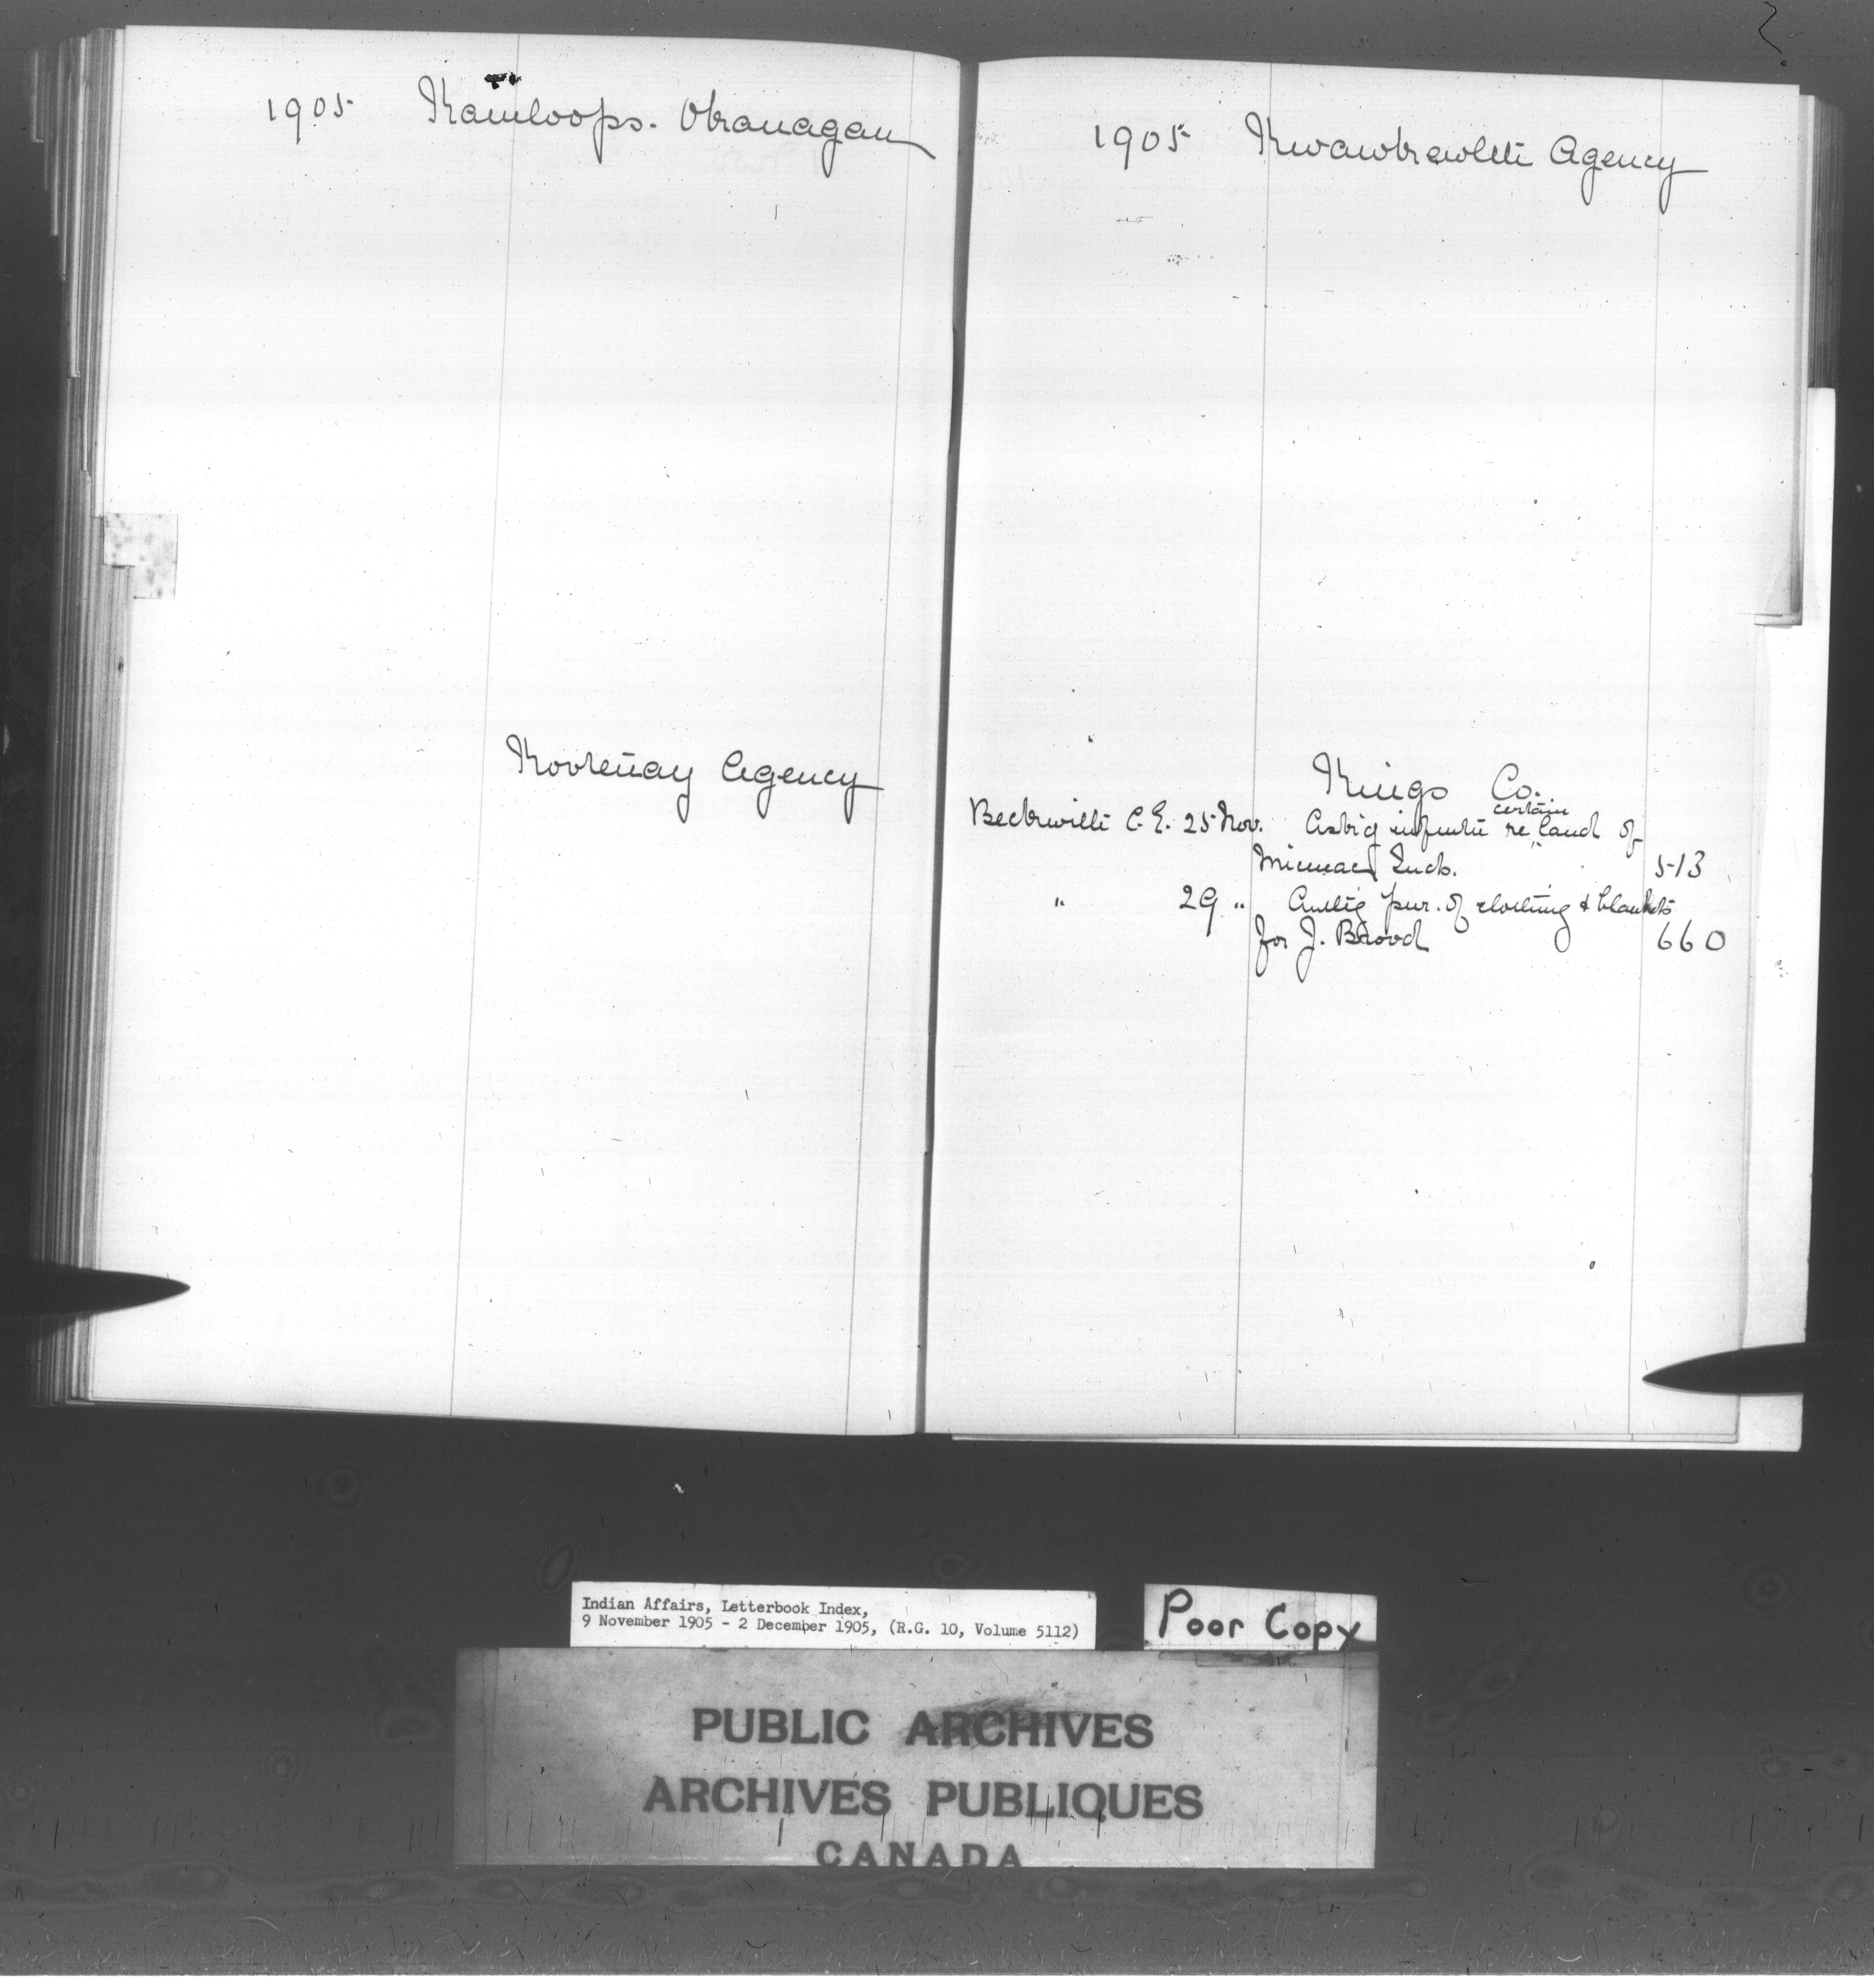 1905 Kamloops. Okanagan
Kootenay Agency
1905 Kwawkewlth Agency
Kings Co.
certain
Beckwith C. E. 25 Nov. Ask'g informtn re land of
Micmac Inds. 513
" 29 " Auth'g pur. of clothing & blankets
for J. Brood 660
Indian Affairs, Letterbook Index,
9 November 1905 - 2 December 1905, (R.G. 10, Volume 5112)
Poor Copy
PUBLIC ARCHIVES
ARCHIVES PUBLIQUES
CANADA